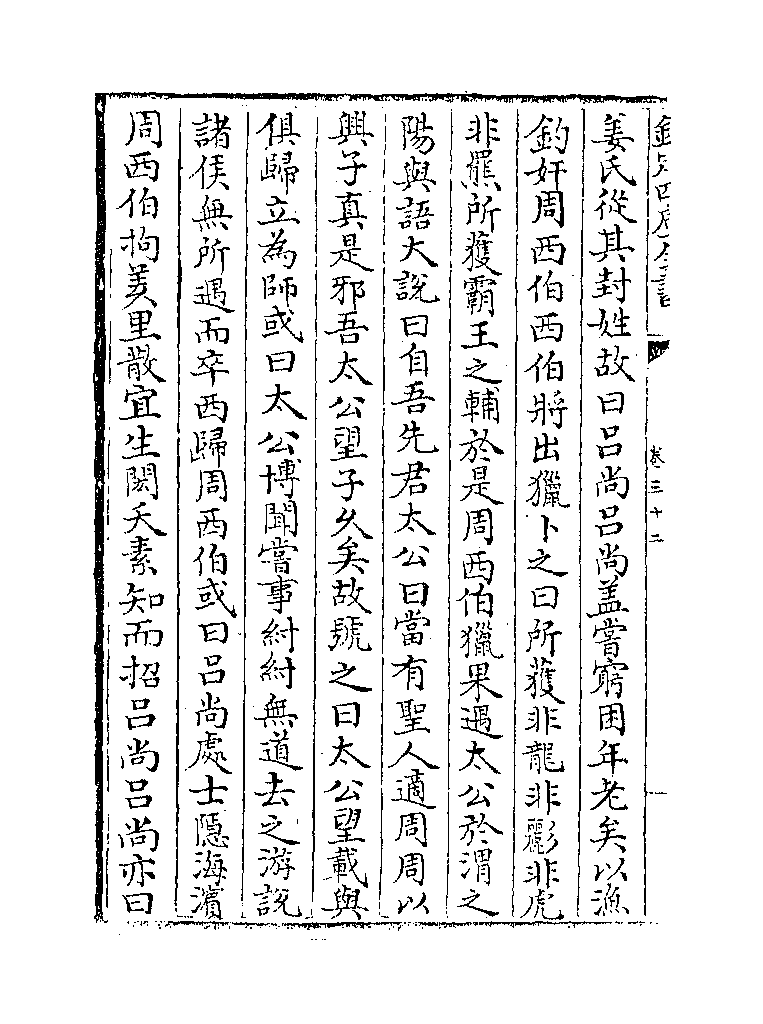 欽定四庫全書
卷三十二
姜氏從其封姓故曰吕尚吕尚盖嘗窮困年老矣以漁
釣奸周西伯西伯將出獵卜之曰所獲非龍非彨非虎
非羆所獲霸王之輔於是周西伯獵果遇太公於渭之
陽與語大説曰自吾先君太公曰當有聖人適周周以
興子真是邪吾太公望子久矣故號之曰太公望載與
俱歸立為師或曰太公博聞嘗事紂紂無道去之游説
諸侯無所遇而卒西歸周西伯或曰吕尚處士隱海濱
周西伯拘羑里散宜生閎夭素知而招吕尚吕尚亦曰